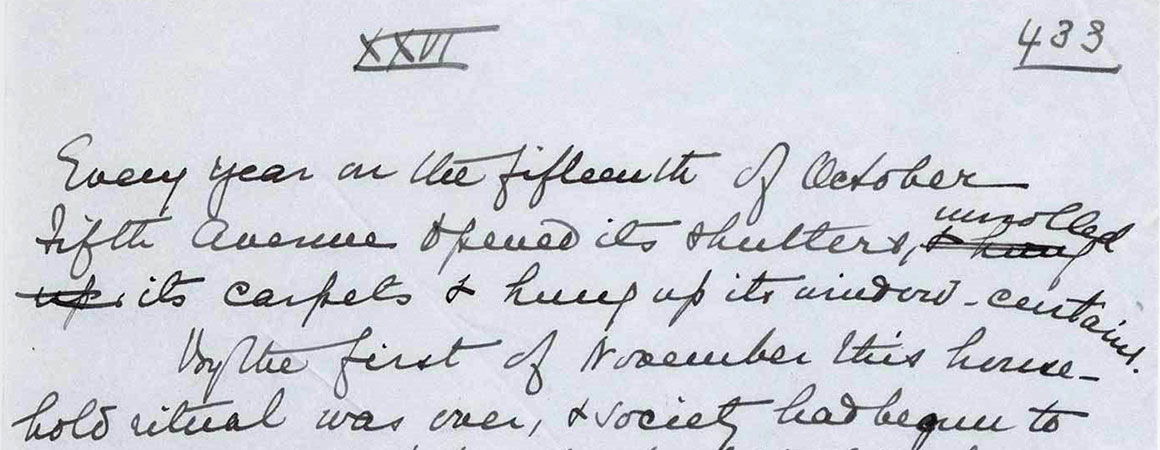 XXVI
433
Every year on the fifteenth of October
Fifth Avenue opened its shutters, & hung unrolled
up its carpets & hung up its window-curtains.
By the first of November this house-
hold ritual was over, & society had begun to